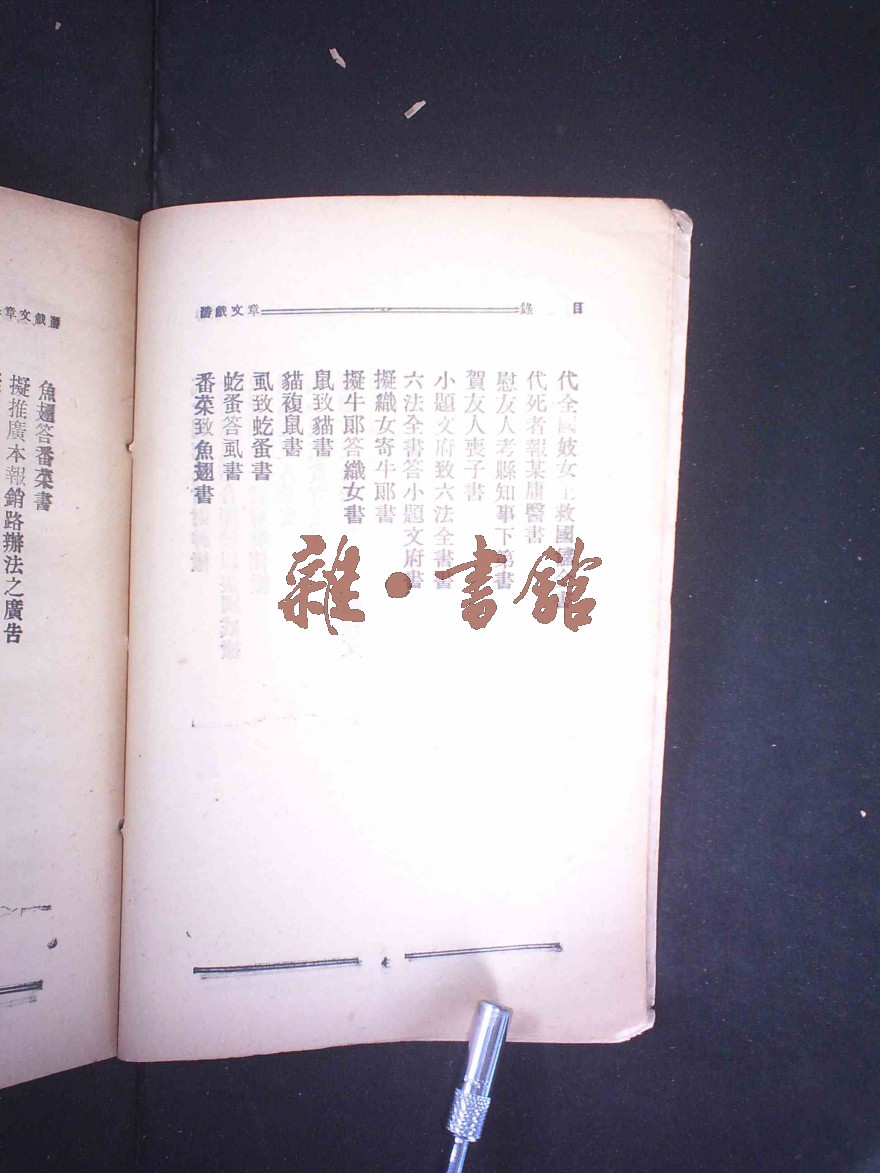 目錄
游戲文章
代全國妓女上救國
代死者報某庸醫書
慰友人考縣知事下第書
賀友人喪子書
小題文府致六法全書書
六法全書答小題文府書
擬織女寄牛郎書
擬牛郎答織女書
鼠致貓書
貓複鼠書
虱致虼蚤書
虼蚤答虱書
番菜致魚翅書
游戲文章
魚翅答番菜書
擬推廣本報銷路辦法之廣告
雜·書館